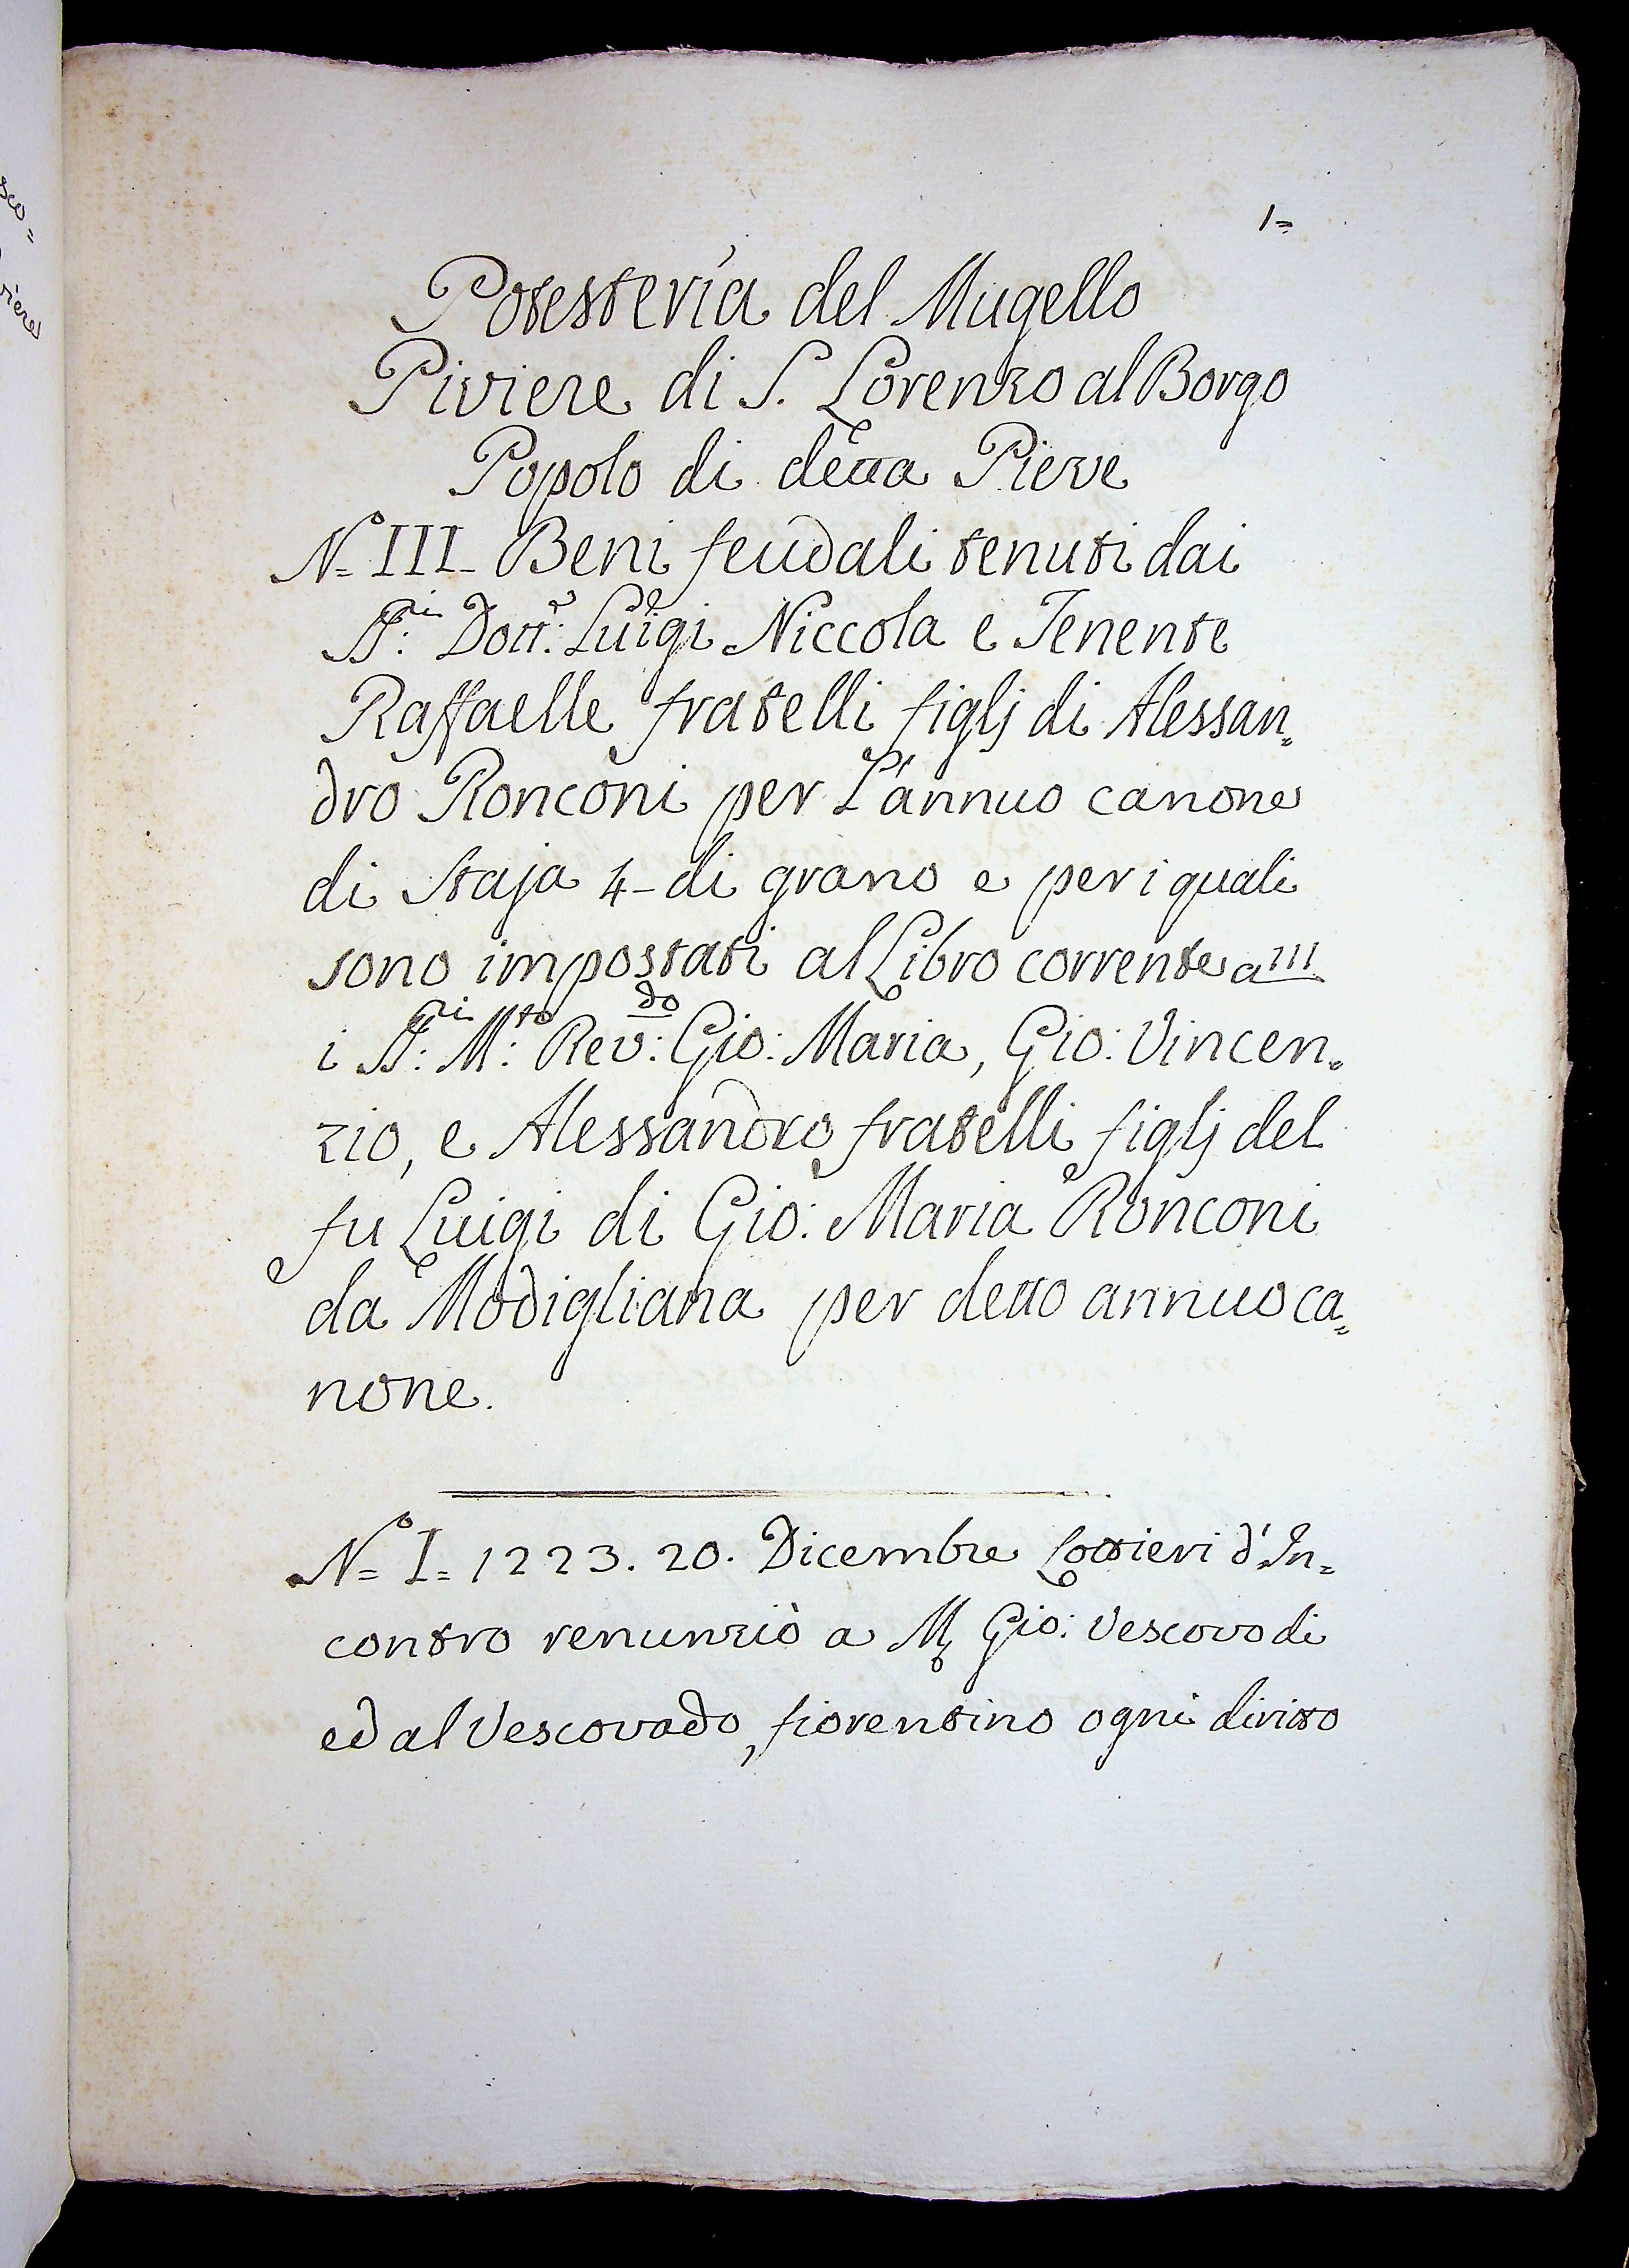 sco=
viere
1=
Potesteria del Mugello
Piviere di S. Lorenzo al Borgo
Popolo di detta Pieve
N.º III_ Beni feudali tenuti dai
SS:ri Dott:r Luigi Niccola e Tenente
Raffaelle fratelli figlj di Alessan=
dro Ronconi per L'annuo canone
di Staja 4_ di grano e per i quali
sono impostati al Libro corrente a 111
i SS:ri M:to Rev:do Gio: Maria, Gio: Vincen=
zio, e Alessandro fratelli figlj del
fu Luigi di Gio: Maria Ronconi
da Modigliana per detto annuo ca=
none.
Nº= I= 1223. 20. Dicembre Lottieri d'In=
contro renunziò a M Gio: Vescovo di
ed al Vescovado, fiorentino ogni diritto